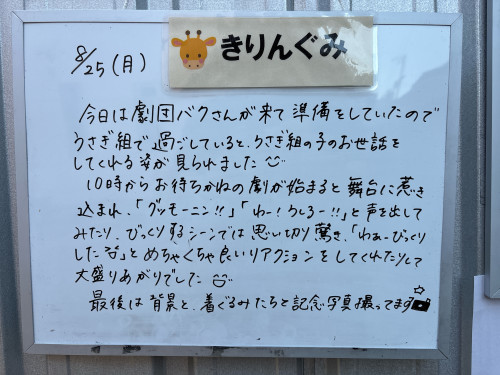 きりんぐみ
8/25(月)
今日は劇団バクさんが来て準備をしていたので
うさぎ組で過ごしていると、うさぎ組の子のお世話を
してくれる姿が見られました
10時からお待ちかねの劇が始まると舞台に惹き
込まれ、「グッモーニン!!」「わー!うしろー!!」と声を出して
みたり、びっくりするシーンでは思い切り驚き、「わぁーびっくり
した」とめちゃくちゃ良いリアクションをしてくれたりして
大盛りあがりでした
最後は背景と、着ぐるみたちと記念写真撮ってます